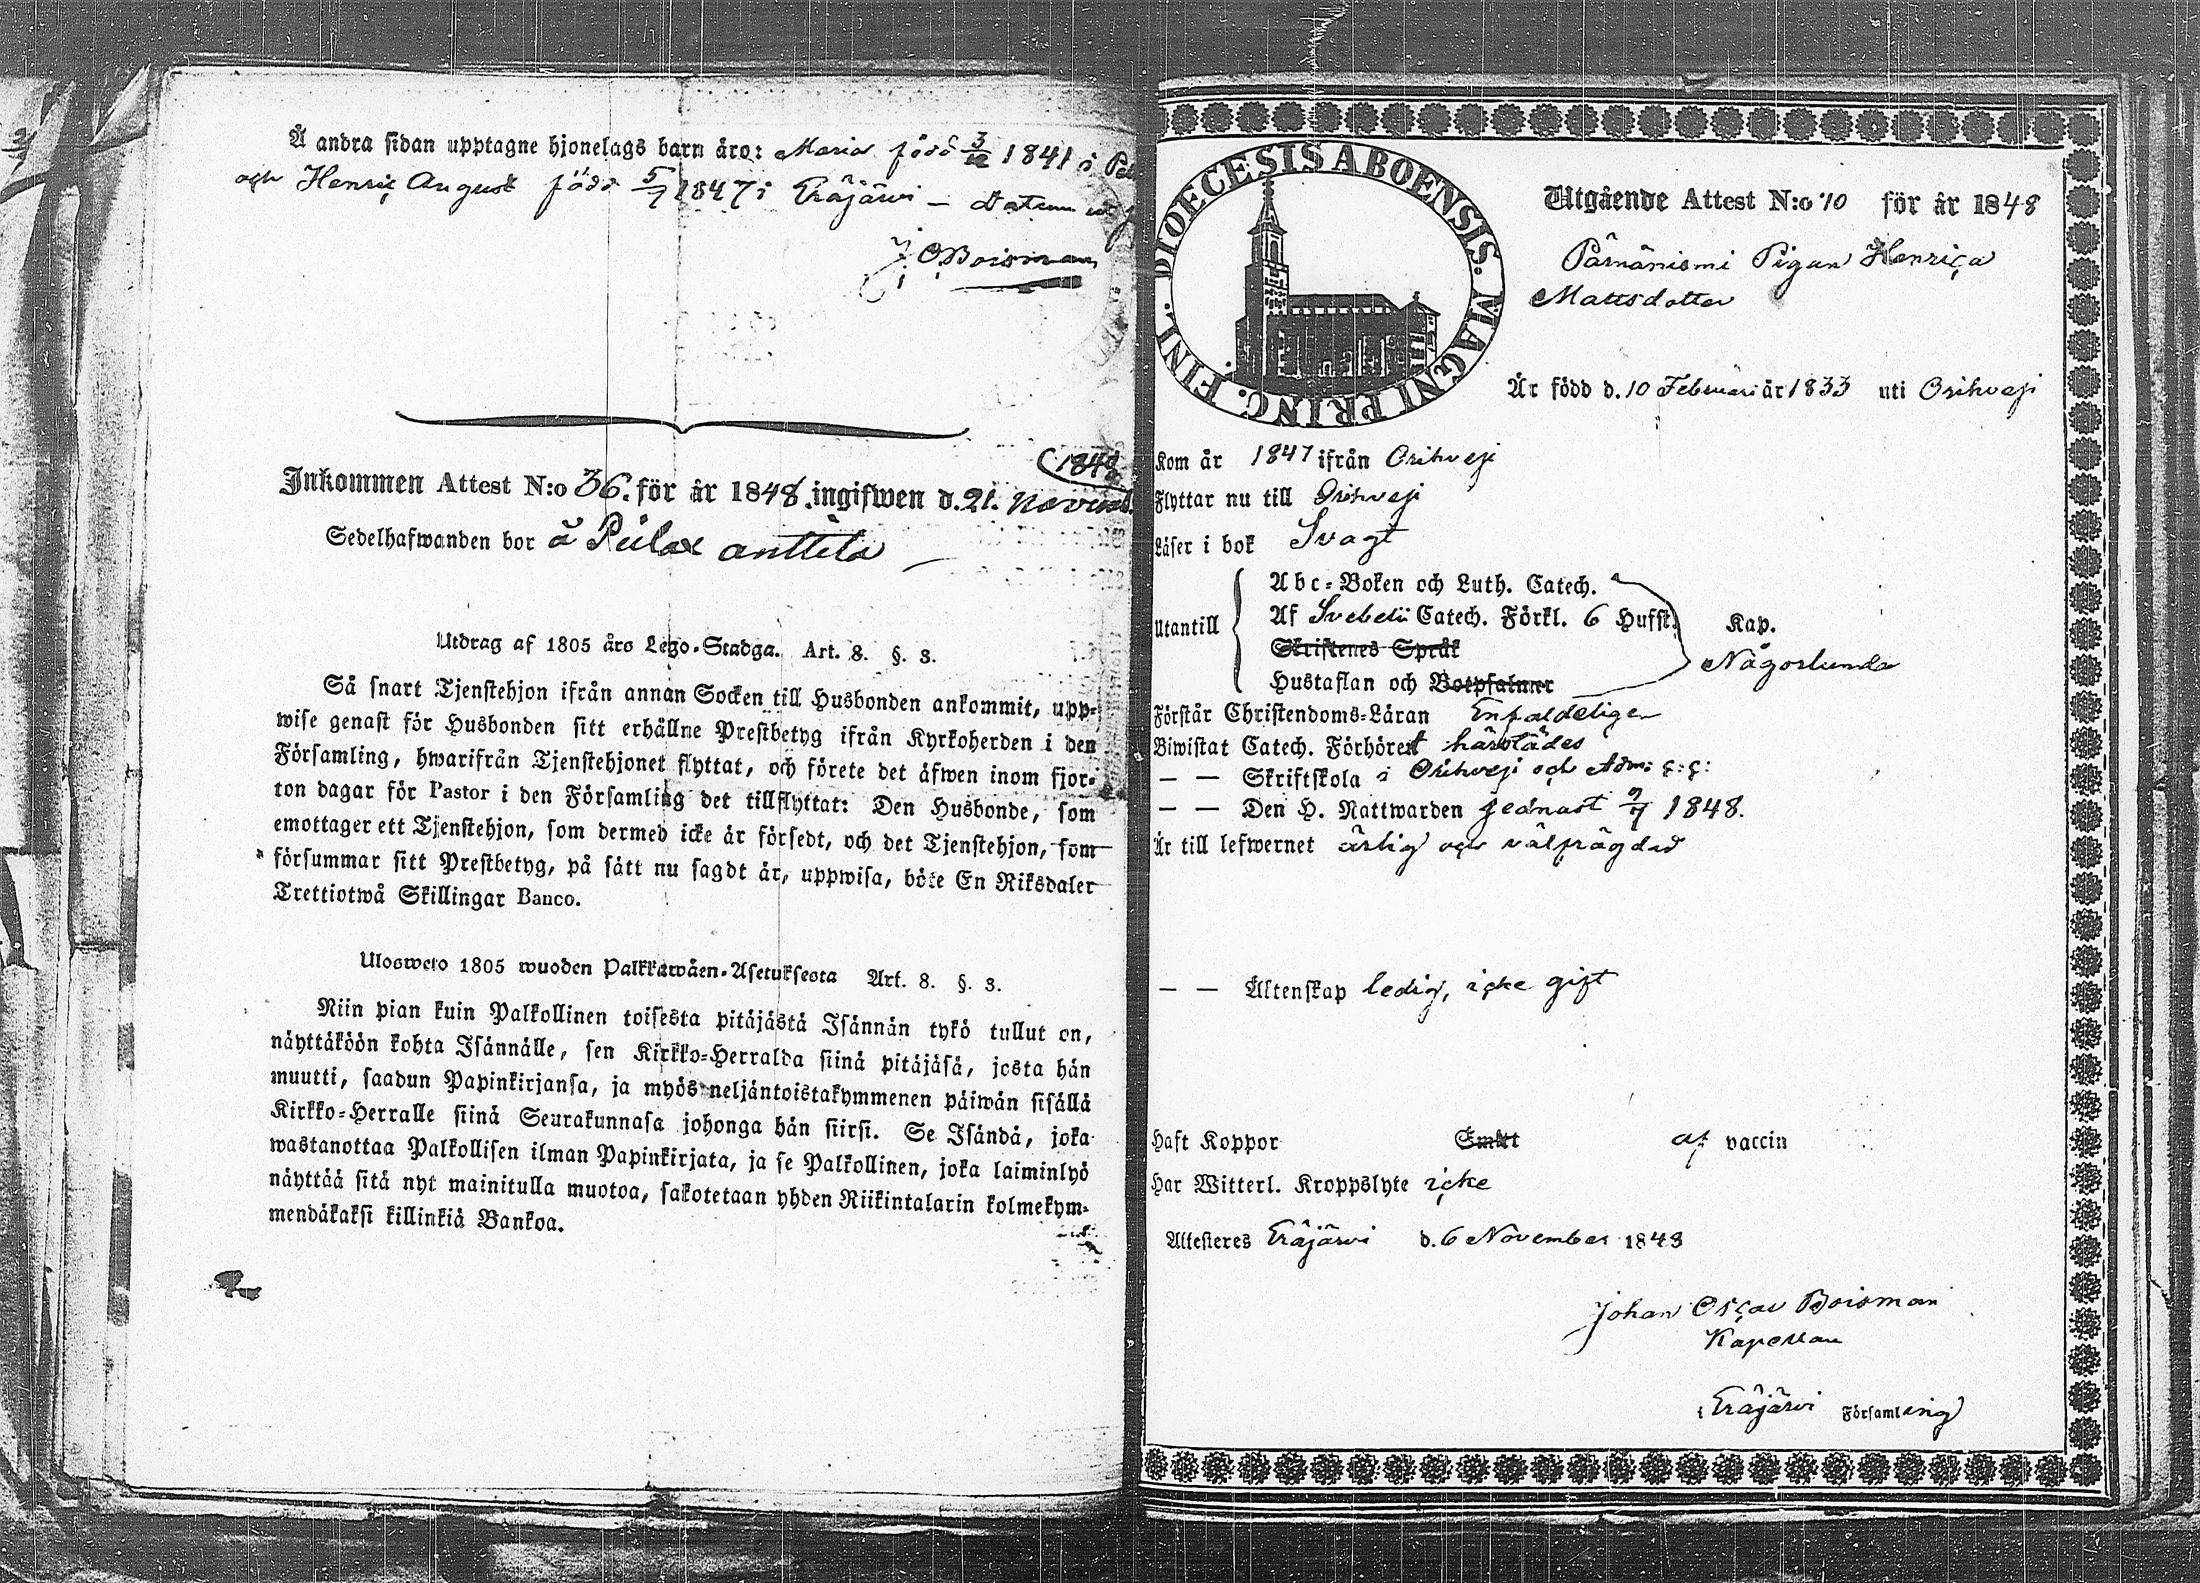 Å andra sidan upptagne hjonelags barn äro: Maria född 3/12 1841 i
och Henric August född 5/7 1847 i Eräjärvi — Datum ut
J. O. Boisman
Inkommen Attest N:o 36. för år 1848. ingifwen d. 21. Novemb.
Sedelhafwanden bor å Anttila
Utdrag af 1805 års Lego-Stadga. Art. 8. §. 3.
Så snart Tjenstehjon ifrån annan Socken till Husbonden ankommit, upp-
wise genast för Husbonden sitt erhållne Prestbetyg ifrån Kyrkoherden i den
Församling, hwarifrån Tjenstehjonet flyttat, och förete det äfwen inom fjor-
ton dagar för Pastor i den Församling det tillflyttat: Den Husbonde, som
emottager ett Tjenstehjon, som dermed icke är försedt, och det Tjenstehjon, som
försummar sitt Prestbetyg, på sätt nu sagdt är, uppwisa, böte En Riksdaler
Trettiotwå Skillingar Banco.
Ulosweto 1805 wuoden Palkkawäen-Asetuksesta Art. 8. §. 3.
Niin pian kuin Palkollinen toisesta pitäjästä Isännän tykö tullut on,
näyttäköön kohta Isännälle, sen Kirkko-Herralda siinä pitäjäsä, josta hän
muutti, saadun Papinkirjansa, ja myös neljäntoistakymmenen päiwän sisällä
Kirkko-Herralle siinä Seurakunnasa johonga hän siirsi. Se Isändä, joka
wastanottaa Palkollisen ilman Papinkirjata, ja se Palkollinen, joka laiminlyö
näyttää sitä nyt mainitulla muotoa, sakotetaan yhden Riikintalarin kolmekym-
mendäkaksi killinkiä Bankoa.
DIOECESIS ABOENSIS. MAGNI PRINC. FINL.
Utgående Attest N:o 10 för år 1848
Pärnäniemi Pigan Henrica
Mattsdotter
Är född d. 10 Februari år 1833 uti Orihvesi
Kom år 1847 ifrån Orihvesi
Flyttar nu till Orihvesi
Läser i bok Svagt
Utantill
Abc-Boken och Luth. Catech.
Af Svebelii Catech. Förkl. 6 Hufst. Kap.
Skriftenes Språk
Någorlunda
Hustaflan och Botpsalmer
Förstår Christendoms-Läran Enfaldeligen
Biwistat Catech. Förhöret härstädes
— — Skriftskola i Orihvesi och Adm:
— — Den H. Nattwarden sednast 9/7 1848.
Är till lefwernet ärlig och välfrägdad
— — Äktenskap ledig, icke gift
Haft Koppor Smitt af vaccin
Har Witterl. Kroppslyte icke
Attesteres Eräjärvi d. 6 November 1848
Johan Oscar Boisman
Kapellan
i Eräjärvi Församling